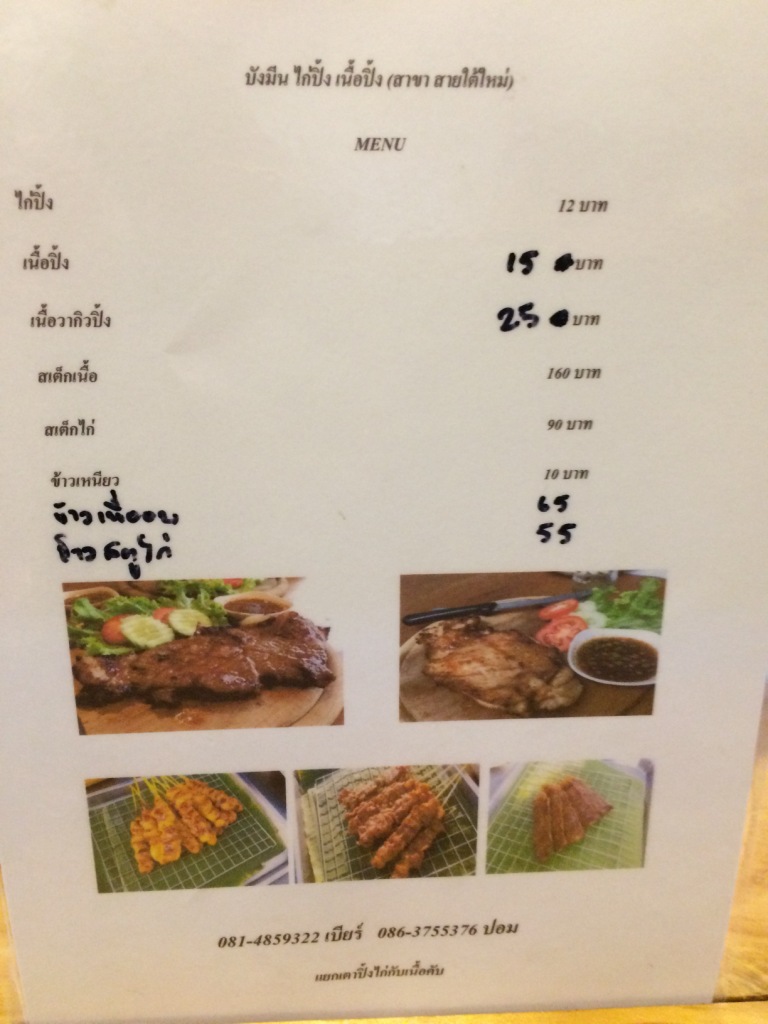 บังมีน ไก่ปิ้ง เนื้อปิ้ง (สาขา สายใต้ใหม่)
MENU
ไก่ปิ้ง 12 บาท
เนื้อปิ้ง 15 บาท
เนื้อวากิวปิ้ง 25 บาท
สเต็กเนื้อ 160 บาท
สเต็กไก่ 90 บาท
ข้าวเหนียว 10 บาท
ข้าวเนื้ออบ 65
ข้าวสตูไก่ 55
081-4859322 เบียร์ 086-3755376 ปอม
แยกเตาปิ้งไก่กับเนื้อคับ